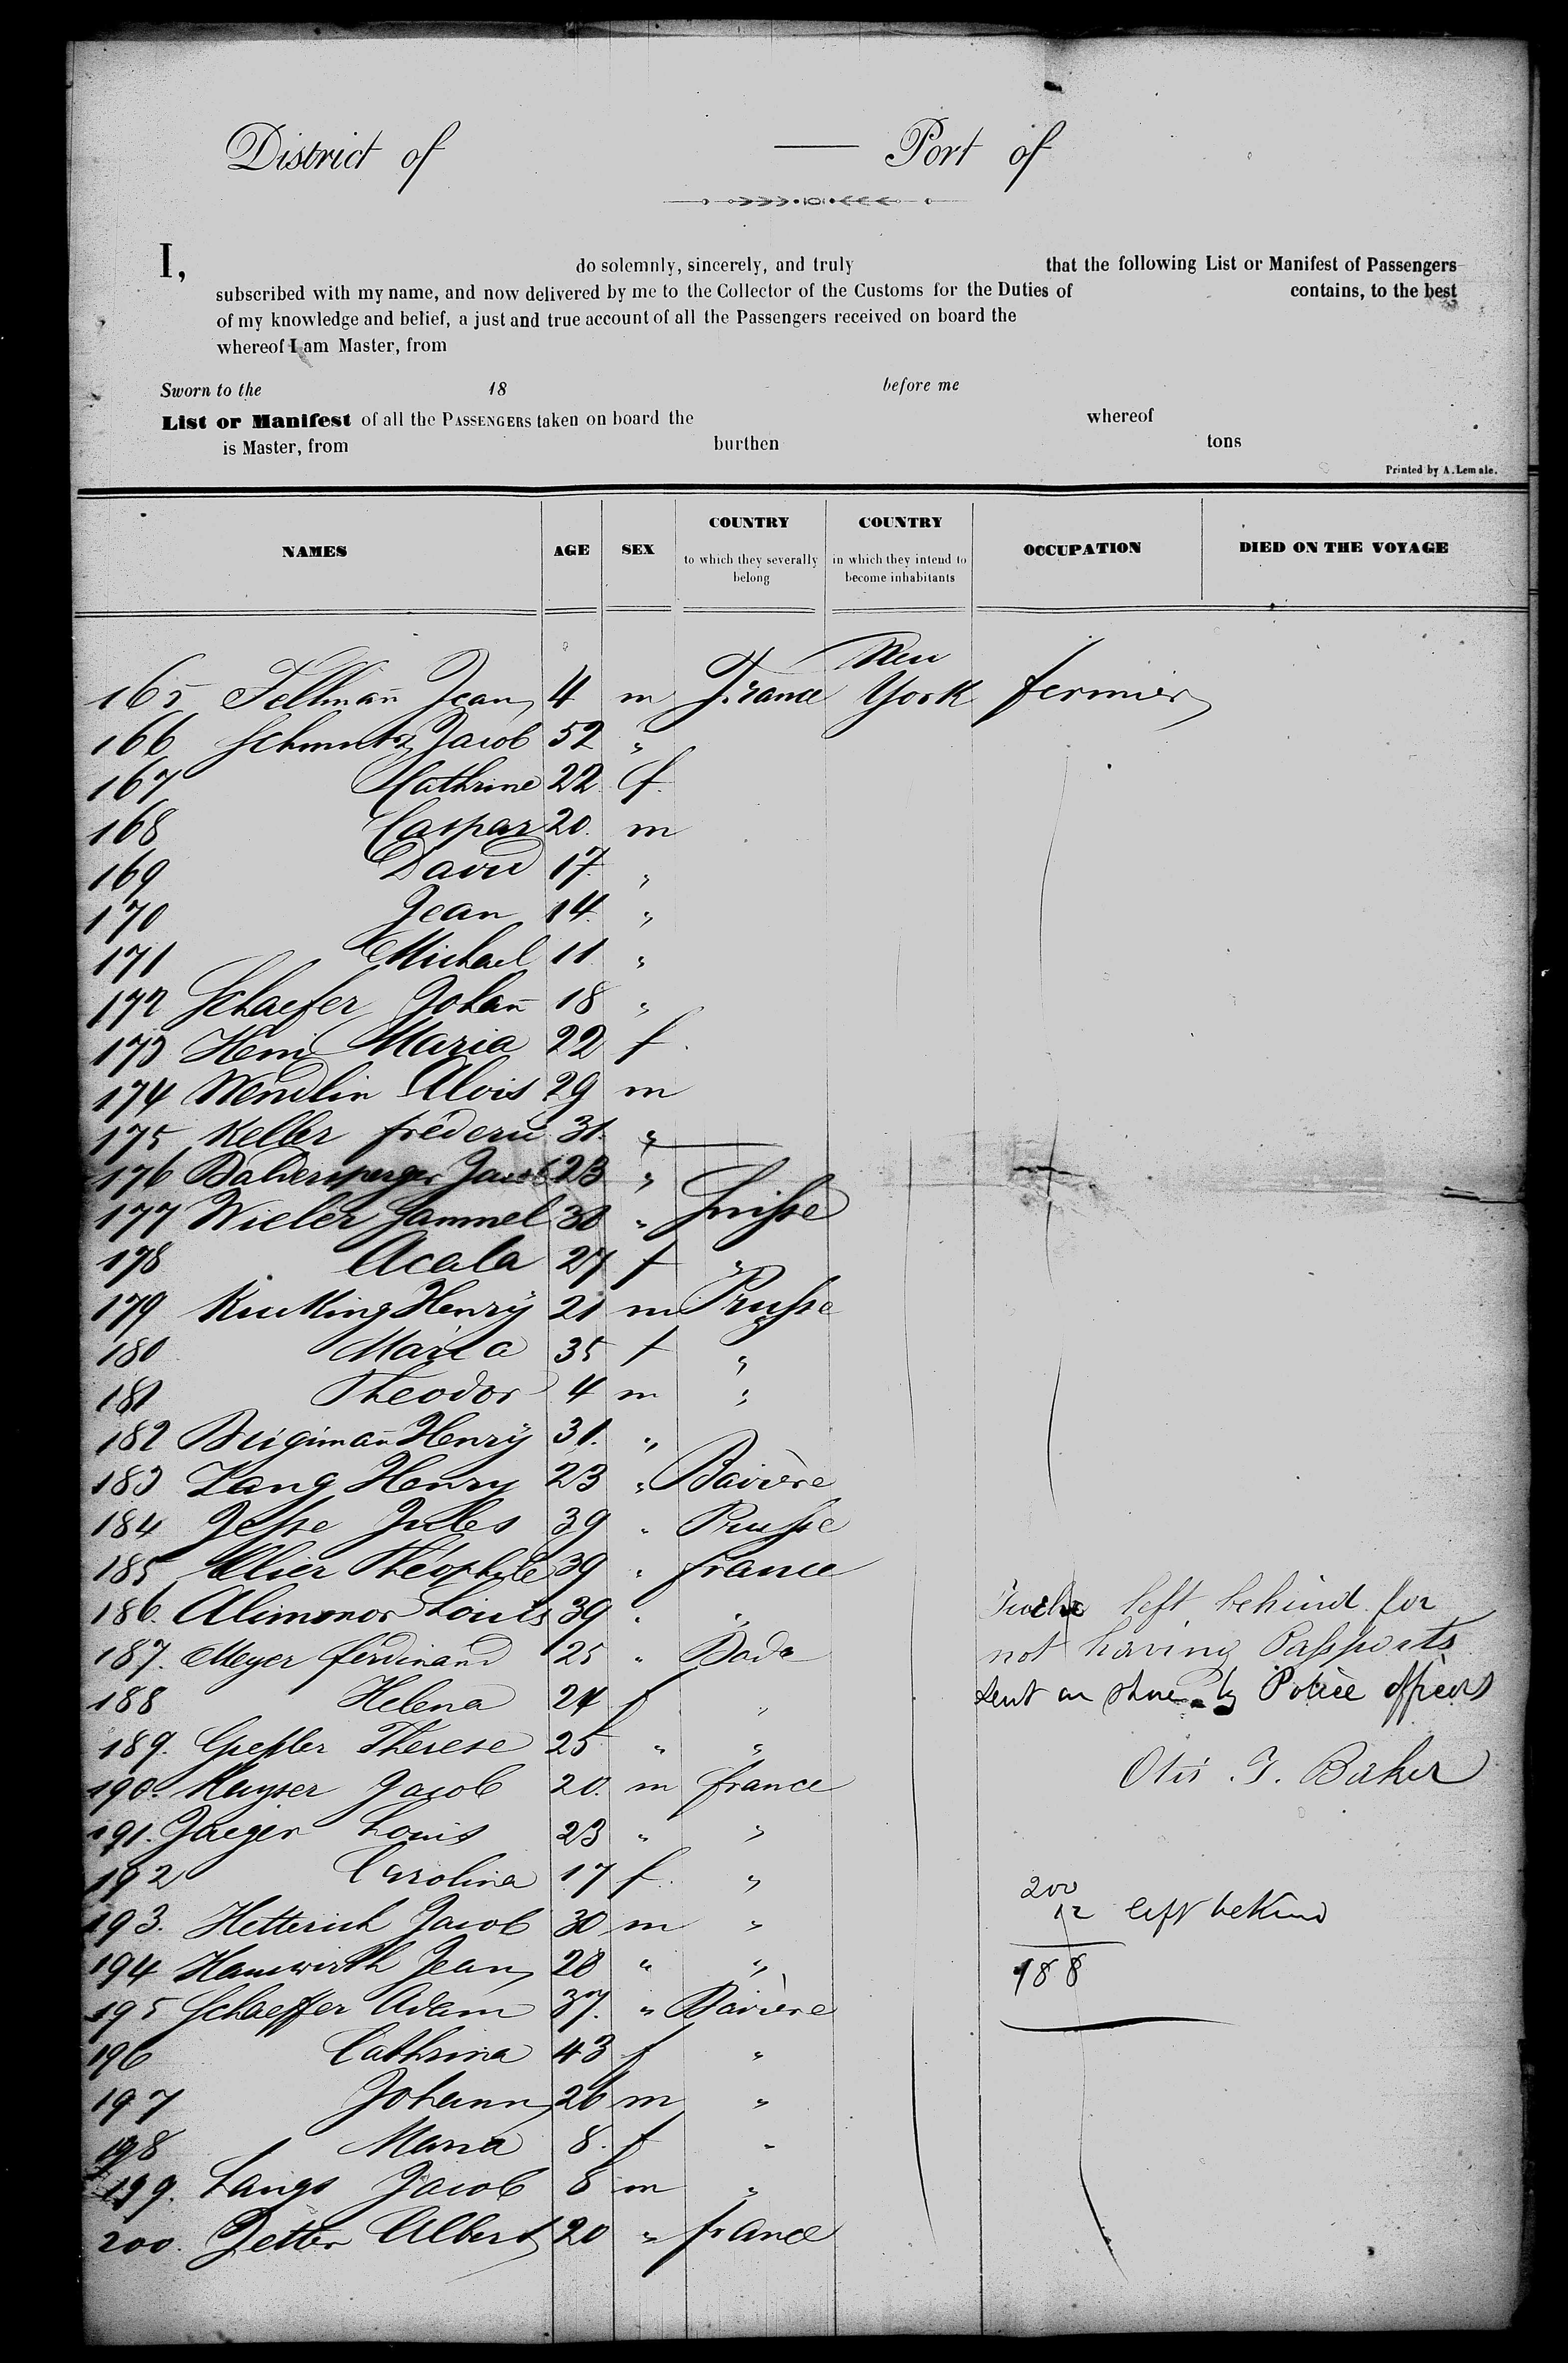 District of — Port of
I, do solemnly, sincerely, and truly that the following List or Manifest of Passengers
subscribed with my name, and now delivered by me to the Collector of the Customs for the Duties of contains, to the best
of my knowledge and belief, a just and true account of all the Passengers received on board the
whereof I am Master, from
Sworn to the 18 before me
List or Manifest of all the PASSENGERS taken on board the whereof
is Master, from burthen tons
Printed by A. Lemale.
NAMES AGE SEX COUNTRY to which they severally belong COUNTRY in which they intend to become inhabitants OCCUPATION DIED ON THE VOYAGE
165 Fellmañ Jean 4 m France New York fermier
166 Schmutz Jacob 52 "
167 Cathrine 22 f
168 Caspar 20. m
169 David 17. "
170 Jean 14. "
171 Michael 11 "
172 Schaefer Johañ 18 "
173 Maria 22 f.
174 Wendlin Alois 29 m
175 Keller fréderic 31. "
176 Jacob 23 "
177 Wieler Sammel 30 " Suisse
178 27 f "
179 Henry 21 m Prusse
180 Maria 35 f "
181 Theodor 4 m "
182 Henry 31. "
183 Lang Henry 23 " Bavière
184 Jesse Jules 39 " Prusse
185 Théophile 39 " france
186. Louis 39 " "
187. Meyer ferdinand 25 " Bade
188 Helena 24 f "
189. Gressler Therese 25 " "
190. Kayser Jacob 20. m france
191. Jaeger Louis 23 " "
192 Carolina 17 f. "
193. Hetterich Jacob 30 m "
194 Jean 28 " "
195 Schaeffer Adam 37. " Bavière
196 Cathrina 43 f "
197 Johann 26 m "
198 Maria 8. f "
199. Langs Jacob 8 m "
200. Zetter Albert 20 " france
Twelve left behind for
not having Passports
sent on shore by Police officers
Otis . T. Baker
200
12 left behind
188